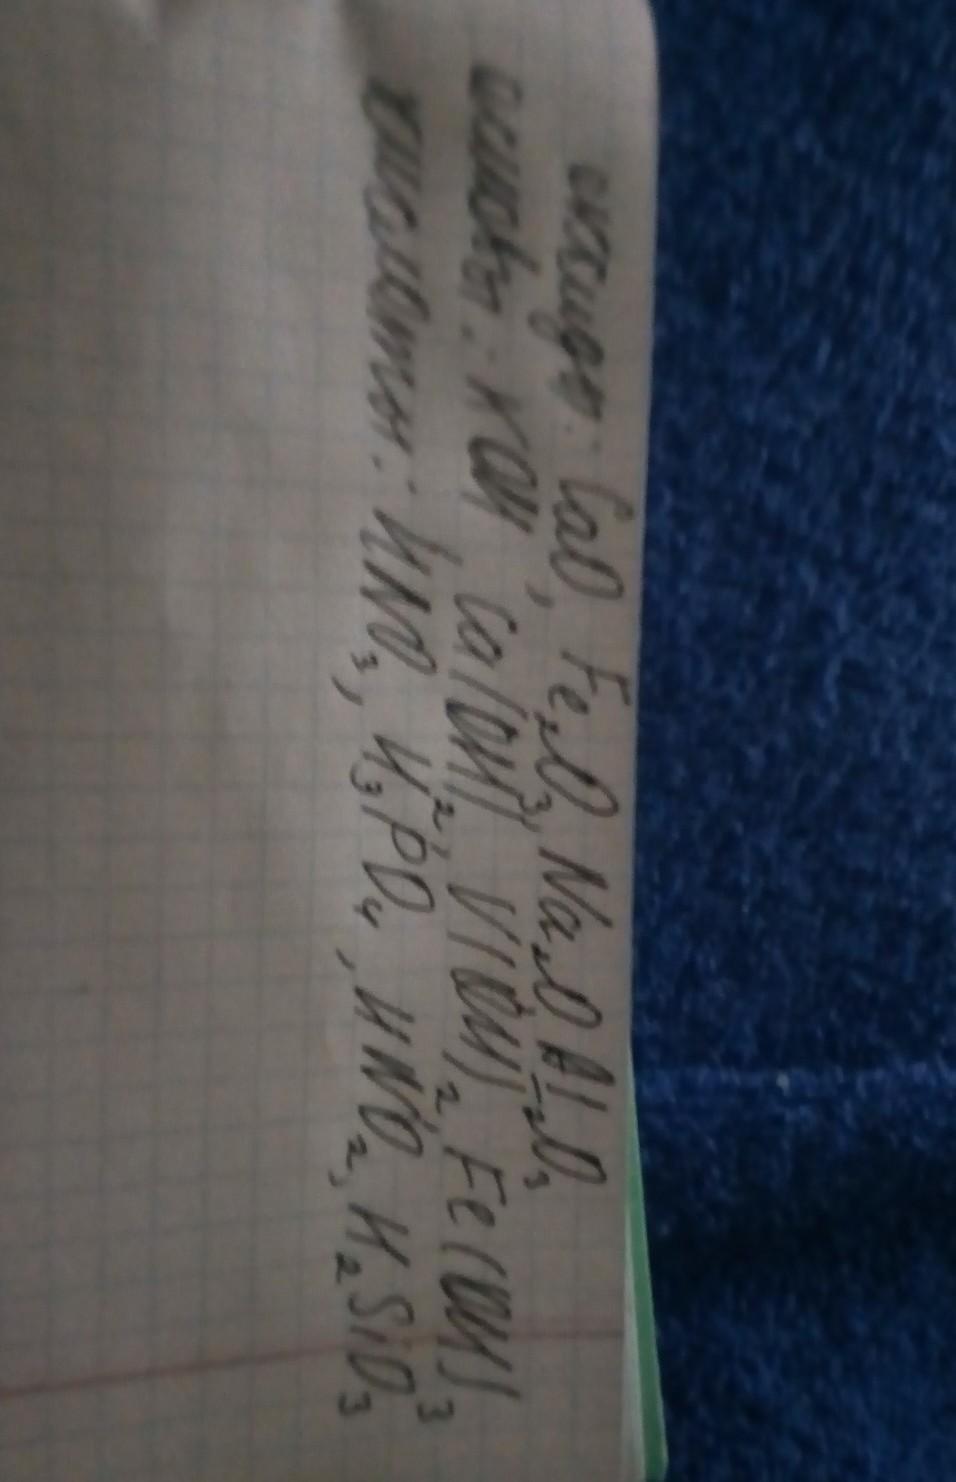 оксиды: CaO, Fe₂O₃, Na₂O Al₂O₃
основ: KOH, Ca(OH)₂, V(OH)₂, Fe(OH)₃
кислоты: HNO₃, H₃PO₄, HNO₂, H₂SiO₃